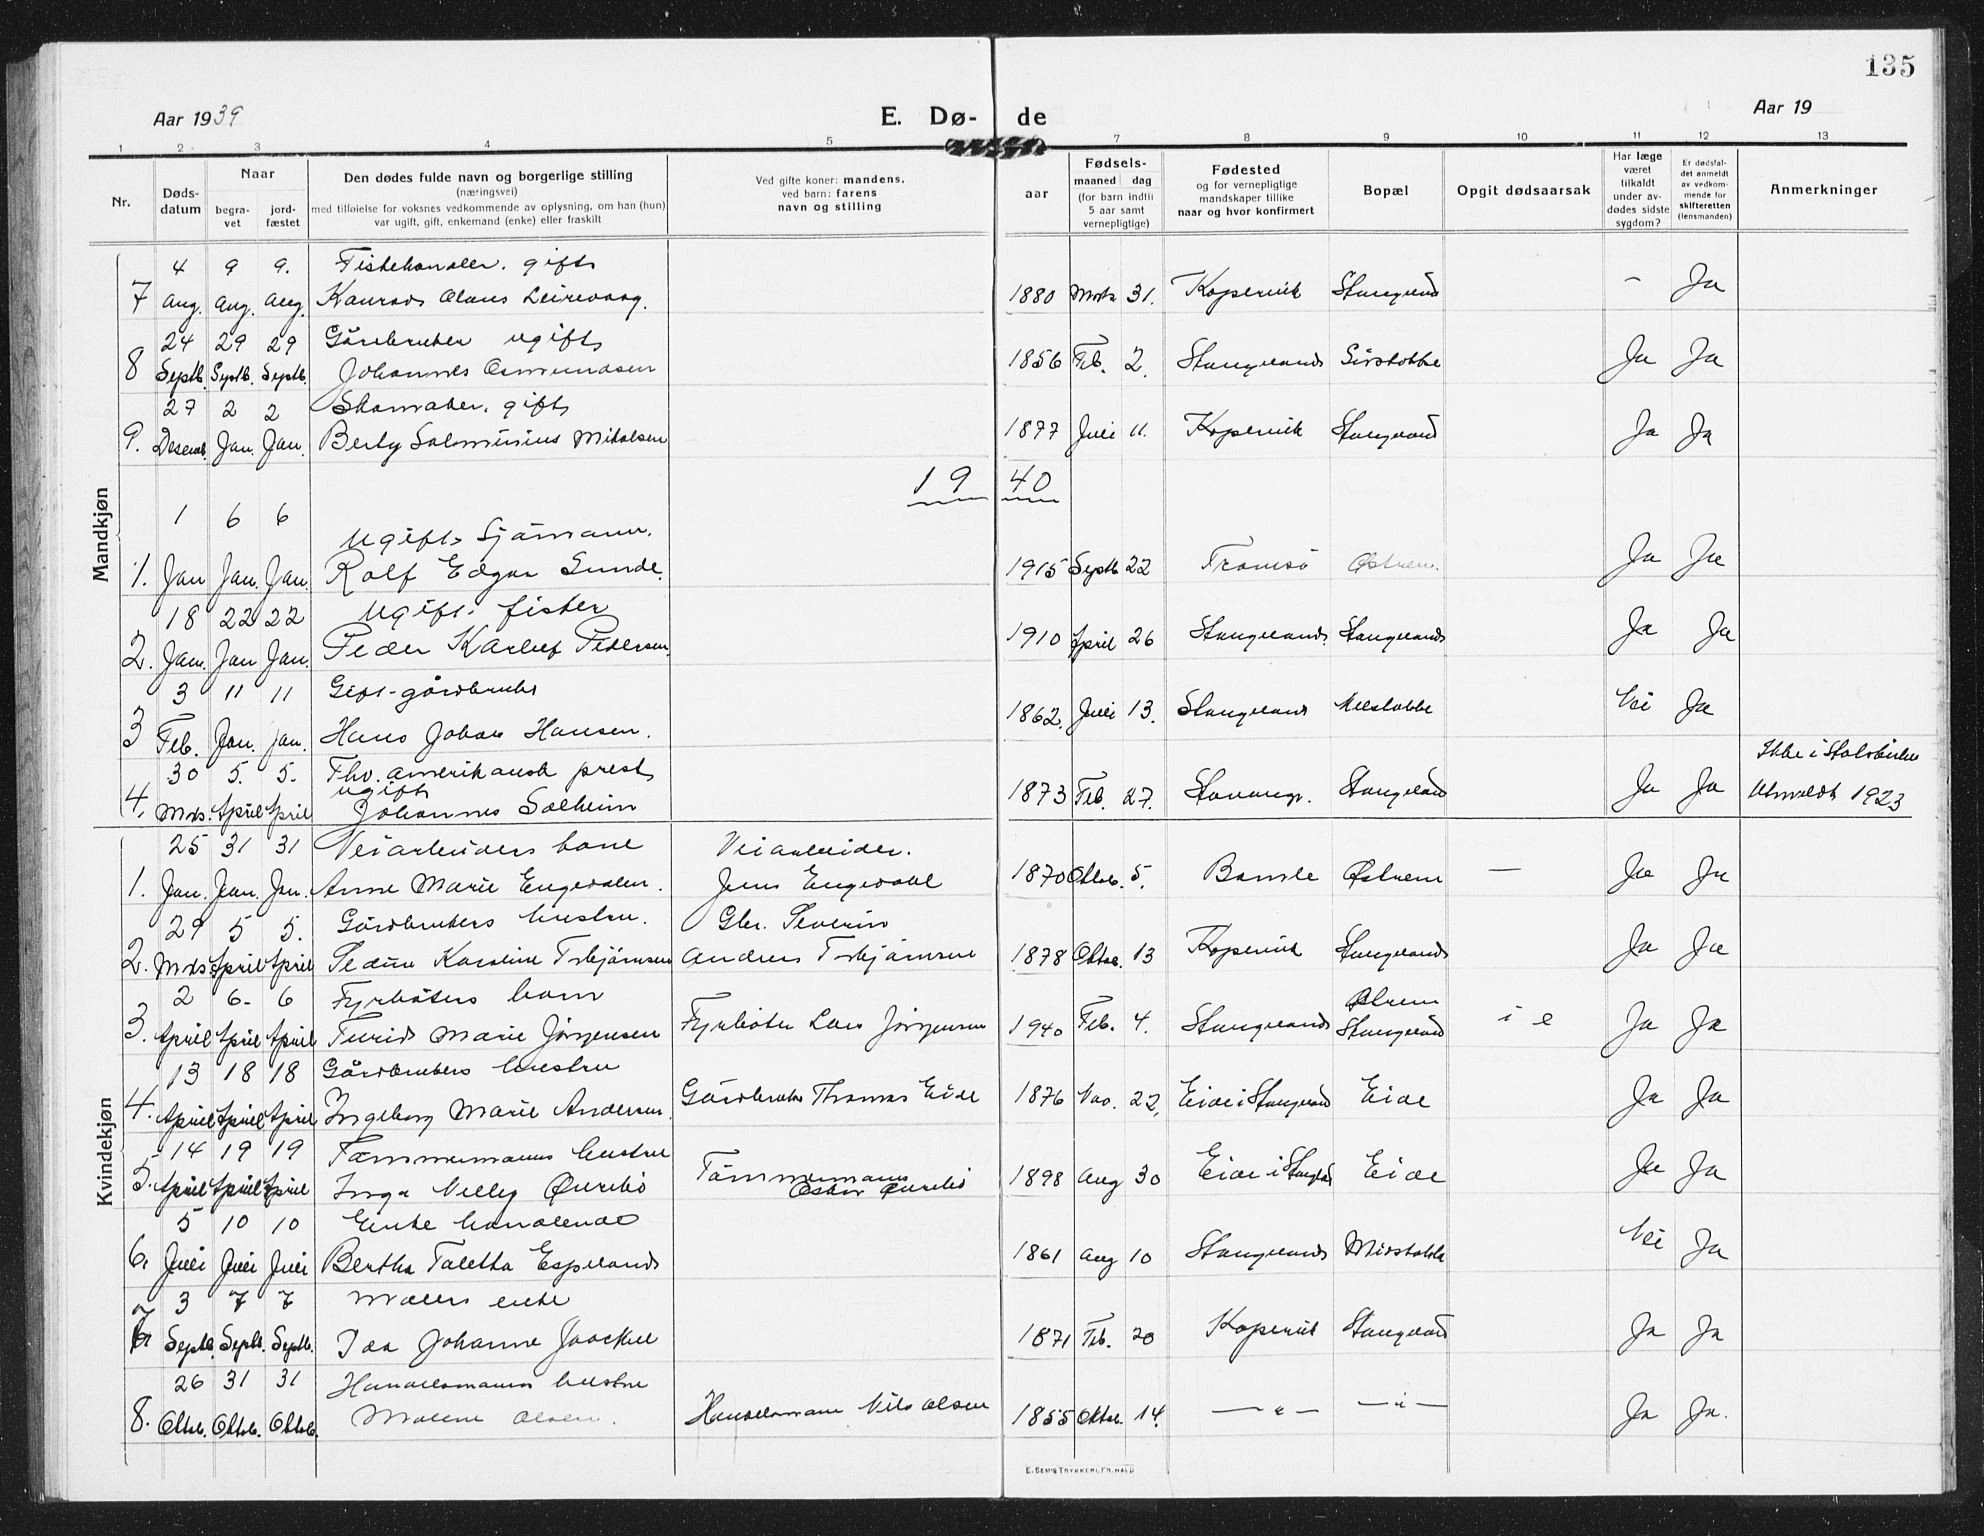 135
Aar 1939
E. Dø-de
Aar 19
1 2 3 4 5 7 8 9 10 11 12 13
Nr.
Døds-
datum
Naar
begra-
vet
jord-
fæstet
Den dødes fulde navn og borgerlige stilling
(næringsvei)
med tilføielse for voksnes vedkommende av oplysning, om han (hun)
var ugift, gift, enkemand (enke) eller fraskilt
Ved gifte koner: mandens,
ved barn: farens
navn og stilling
Fødsels-
aar
maaned dag
(for barn indtil
5 aar samt
vernepligtige)
Fødested
og for vernepligtige
mandskaper tillike
naar og hvor konfirmert
Bopæl
Opgit dødsaarsak
Har læge
været
tilkaldt
under av-
dødes sidste
sygdom?
Er dødsfal-
det anmeldt
av vedkom-
mende for
skifteretten
(lensmanden)
Anmerkninger
Mandkjøn
4 9 9. Fiskehandler. gift
7 Aug. Aug. Aug. Konrad Olaus Leirevaag. 1880 Mrts 31. Kopervik Stangeland - Ja
24 29 29 Gårdbruker ugift
8 Septb. Septb. Septb. Johannes Osmundsen 1856 Feb. 2. Stangeland Ja Ja
27 2 2 Skomaker. gift
9. Desemb. Jan. Jan. Berty Salominius Mikalsen 1877 Juli 11. Kopervik Stangeland Ja Ja
1940
1 6 6 Ugift Sjömann.
1. Jan Jan. Jan. Rolf Edgar Sunde. 1915 Septb 22 Tromsö Østrem. Ja Ja
18 22 22 Ugift fisker
2. Jan. Jan Jan. Peder Karluf Pedersen. 1910 April 26 Stangeland. Stangeland Ja Ja
3 11 11 Gift-gårdbruker
3 Feb. Jan. Jan. Hans Johan Hansen. 1862. Juli 13. Stangeland Nei Ja
30 5. 5. Fhv. amerikansk prest
ugift
4. Mrs. April April Johannes Solheim 1873 Feb. 27. Stavanger. Stangeland Ja Ja
Ikke i Statskirken
Utmeldt 1923
Kvindekjøn
25 31 31 Veiarbeiders kone Veiarbeider.
1. Jan. Jan. Jan. Anne Marie Engedalen. Jens Engedahl 1870 Oktob. 5. Bamle Østrem — Ja Ja
29 5 5. Gårdbrukers hustru. Gbr. Severin
2. Mrs April April Karoline Torbjörnsen Andreas Torbjörnsen 1878 Oktob. 13 Kopervik Stangeland Ja Ja
2 6- 6 Fyrböters barn Østrem
3. April April April Turid Marie Jörgensen Fyrböter Lars Jörgensen 1940 Feb. 4. Stangeland Stangeland Ja Ja
13 18 18 Gårdbrukers hustru
4. April April April Ingeborg Marie Andersen Gårdbruker Thomas Eide 1876 Nov. 22. Eide i Stangeland Eide Ja Ja
14 19 19 Tömmermanns hustru Tömmermann
5. April April April Inga Nelly Øvrebö Oskar Øvrebö 1898 Aug 30 Eide i Stangeland Eide Ja Ja
5 10 10 Enke handlende
6. Juli Juli Juli Bertha Taletta Espeland 1861 Aug 10 Stangeland Nei Ja
3 7 7 Malers enke
7 Septb. Septb. Septb. Ida Johanne 1871 Feb. 20 Kopervik Stangeland Ja Ja
26 31 31 Handelsmanns hustru
8. Oktob. Oktob. Oktob. Malene Olsen. Handelsmann Nils Olsen 1855 Oktob. 14. —"— —"— Ja Ja.
E. SEM'S TRYKKERI, FR. HALD